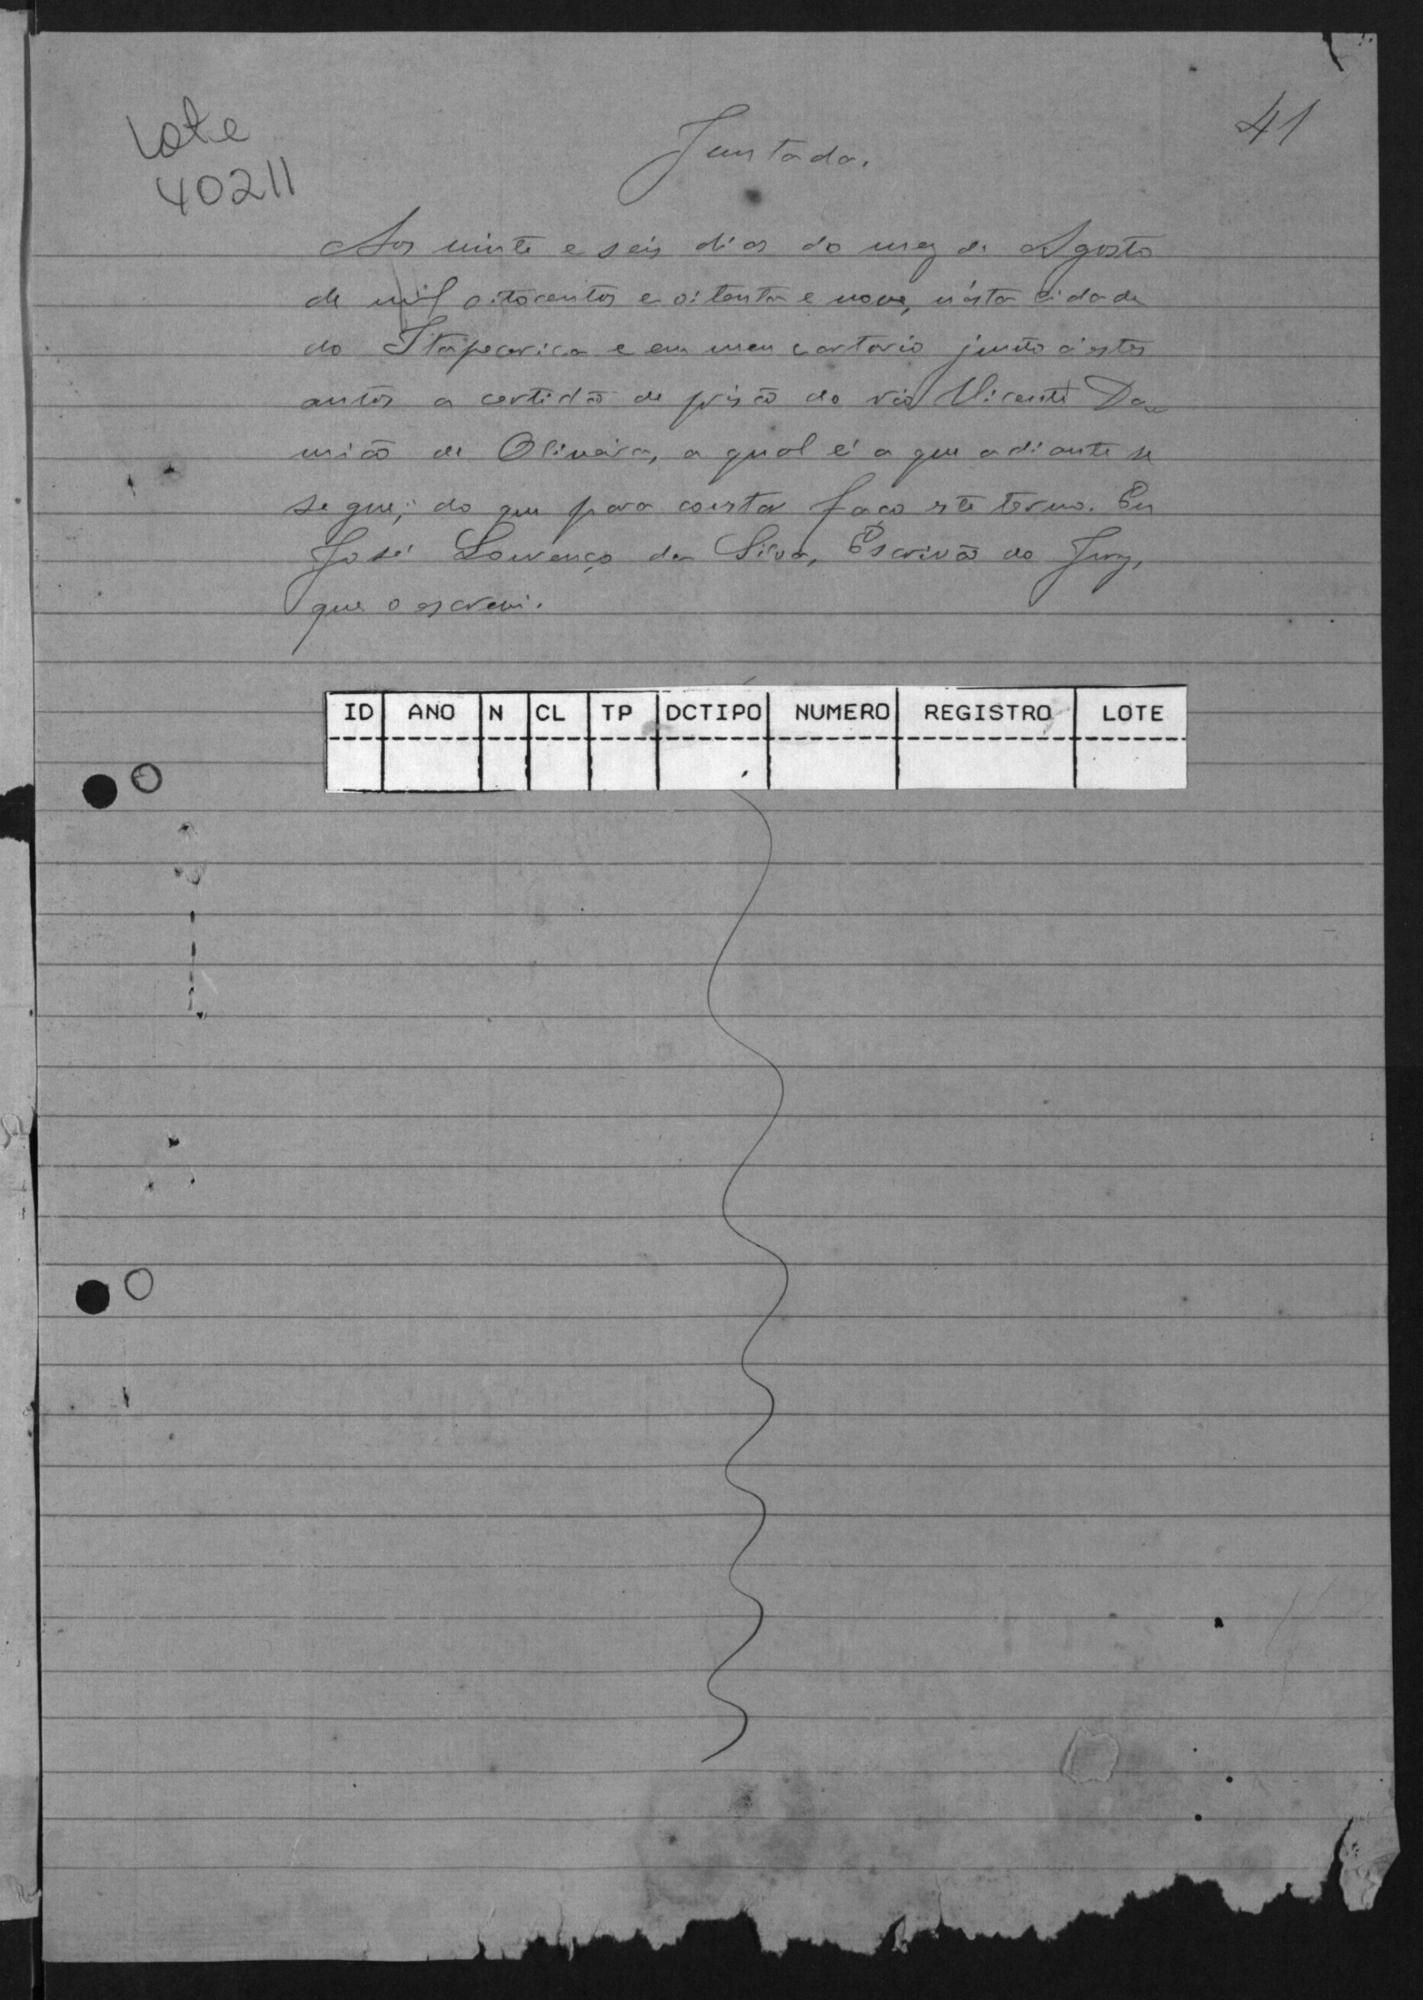 Lote
40211
41
Juntada.
Aos vinte e seis dias do mez de Agosto
de mil oitocentos e oitenta e nove, n'esta cidade
do Itapecerica e em meu cartorio junto á estes
autos a certidão de prisão do réo Vicente Da-
mião de Oliveira, a qual é a que adiante se
segue; do que para constar faço este termo. Eu
José Lourenço da Silva, Escrivão do Jury,
que o escrevi.
ID ANO N CL TP DCTIPO NUMERO REGISTRO LOTE